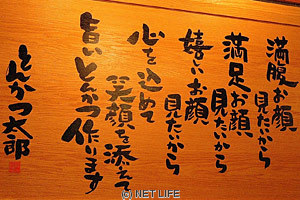 満腹お顔
見たいから
満足お顔
見たいから
嬉しいお顔
見たいから
心を込めて
笑顔を添えて
旨いとんかつ作ります
とんかつ太郎
(C) NET LIFE